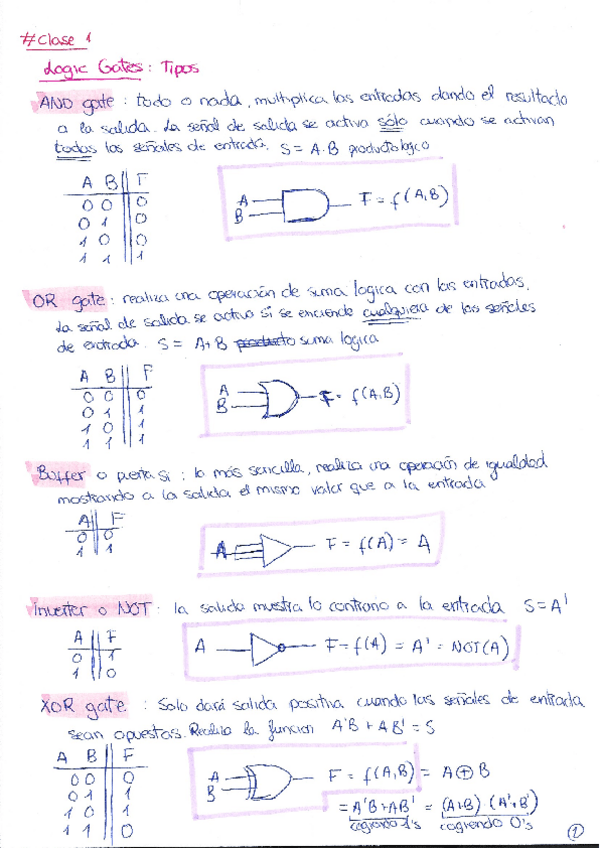 #Clase 1
Logic Gates: Tipos
AND gate: todo o nada, multiplica las entradas dando el resultado
a la salida. La señal de salida se activa sólo cuando se activan
todas las señales de entrada. S = A·B producto logico
A B F
0 0 0
0 1 0
1 0 0
1 1 1
A
B
F = f(A,B)
OR gate: realiza una operación de suma logica con las entradas.
La señal de salida se activa si se enciende cualquiera de las señales
de entrada. S = A+B producto suma logica
A B F
0 0 0
0 1 1
1 0 1
1 1 1
A
B
F = f(A,B)
Buffer o puerta si: la más sencilla, realiza una operación de igualdad
mostrando a la salida el mismo valor que a la entrada
A F
0 0
1 1
A
F = f(A) = A
Inverter o NOT: la salida muestra lo contrario a la entrada S=A'
A F
0 1
1 0
A
F = f(A) = A' = NOT(A)
XOR gate: Solo dará salida positiva cuando las señales de entrada
sean opuestas. Realiza la funcion A'B + AB' = S
A B F
0 0 0
0 1 1
1 0 1
1 1 0
A
B
F = f(A,B) = A⊕B
= A'B + AB' = (A+B)·(A'+B')
cogiendo 1's cogiendo 0's
1